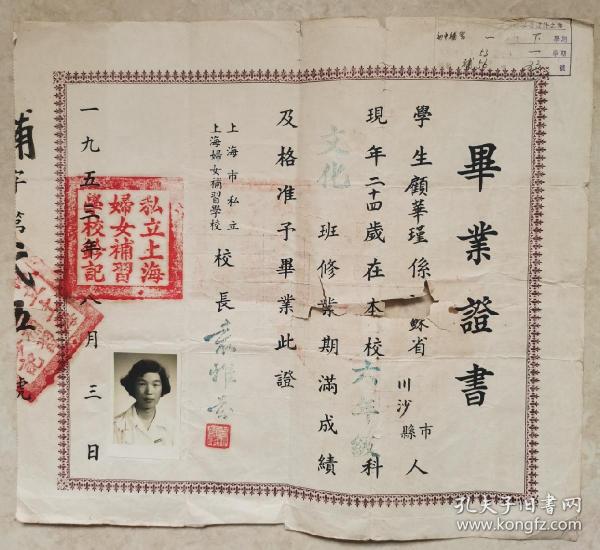 畢業證書
學生顧華瑾係蘇省川沙縣市人
現年二十四歲在本校六年級科
文化班修業期滿成績
及格准予畢業此證
上海市私立
上海婦女補習學校
校長
私立上海
婦女補習
學校鈐記
一九五三年八月三日
補字第弍五號
學期
一學期
號
孔夫子旧书网
www.kongfz.com